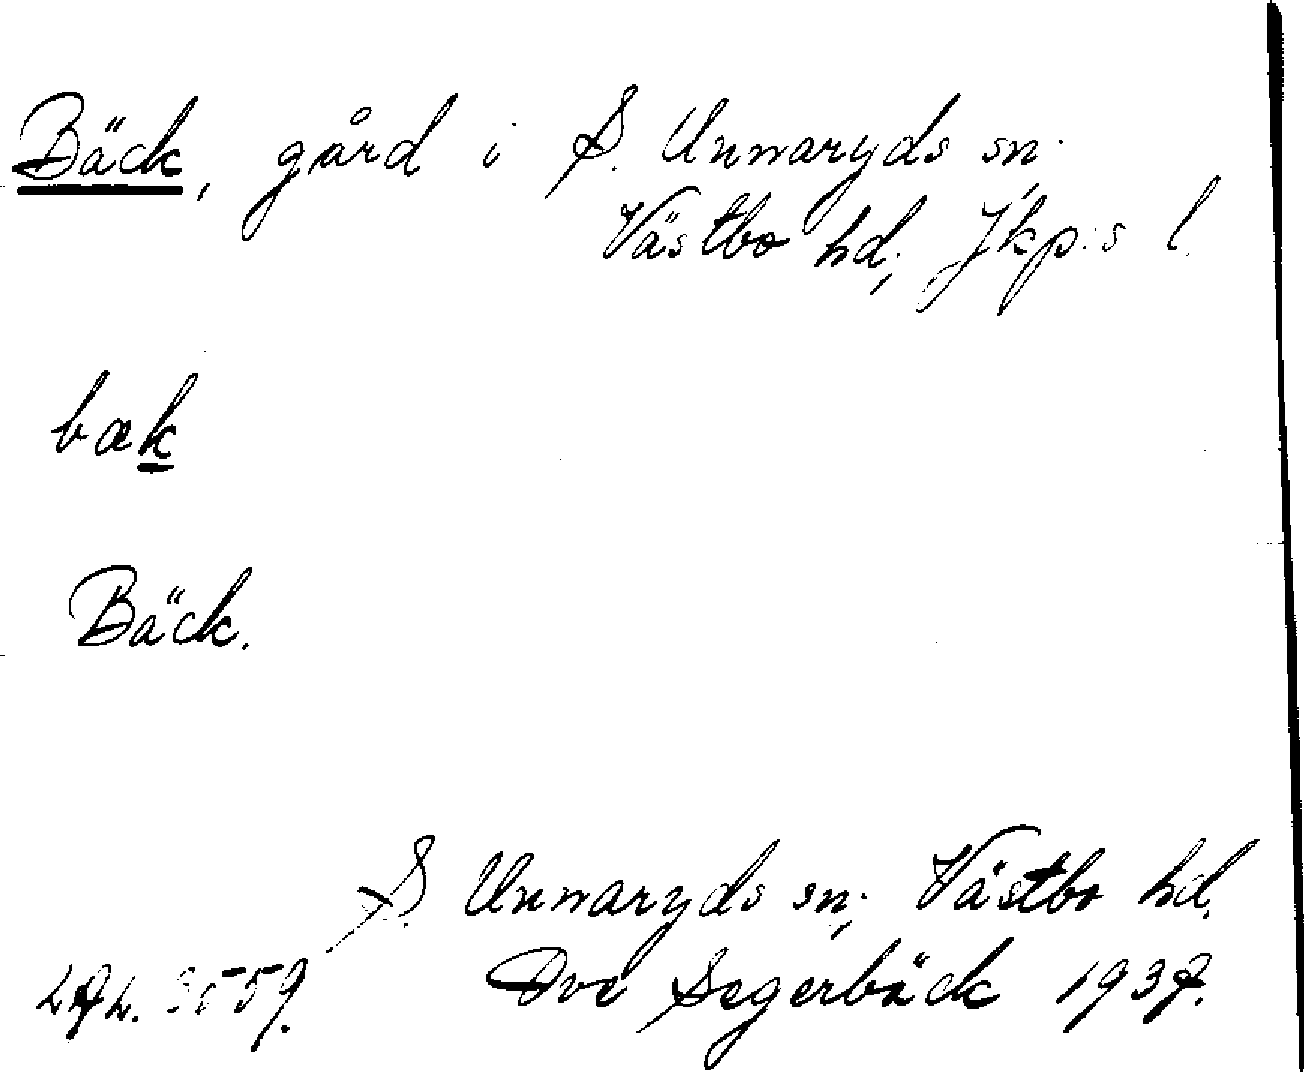 Bäck, gård i S. Unnaryds sn.
Västbo hd., Jkp:s l.
bæk
Bäck.
S. Unnaryds sn., Västbo hd.
Ove Segerbäck 1937.